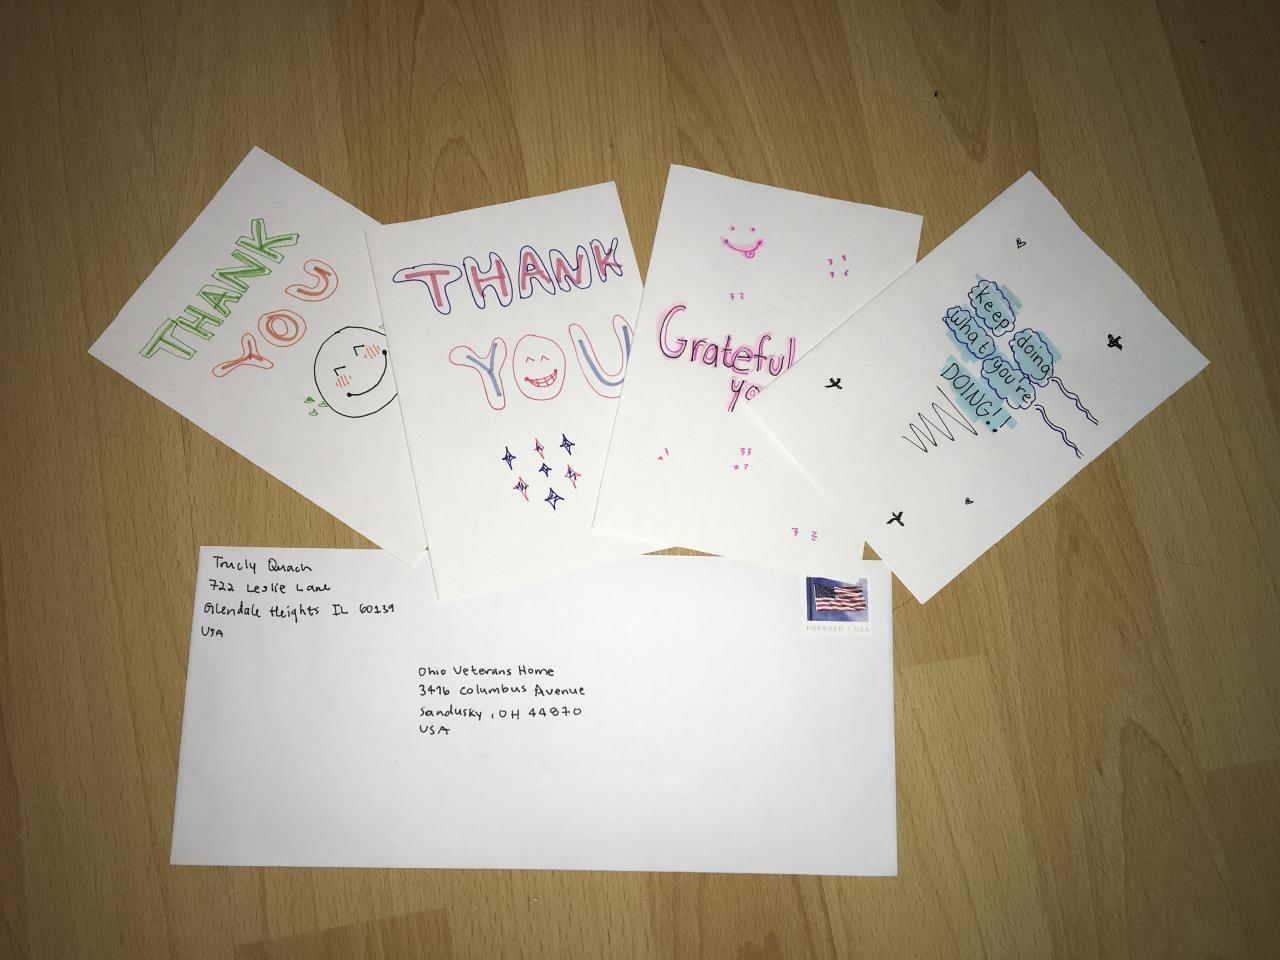 THANK
YOU
THANK
YOU
Grateful
yo
keep
doing
what you're
DOING!!
Trucly Quach
722 Leslie Lane
Glendale Heights IL 60139
USA
FOREVER / USA
Ohio Veterans Home
3416 Columbus Avenue
Sandusky, OH 44870
USA